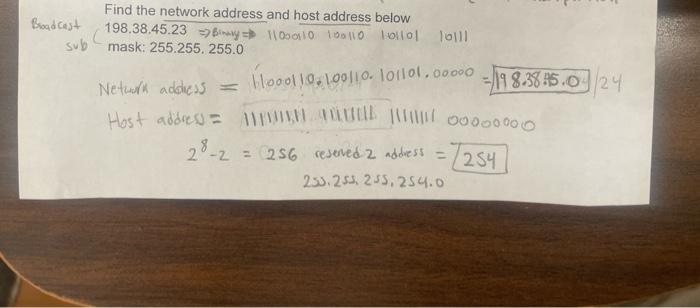 Find the network address and host address below
Broadcast 198.38.45.23 => Binary => 1100010 100110 101101 10111
sub mask: 255.255. 255.0
Network address = 11000110.100110. 101101.00000 = 198.38.45.0 /24
Host address = 11111111 11111111 11111111 00000000
2^8-2 = 256 reserved 2 address = 254
255.255.255.254.0